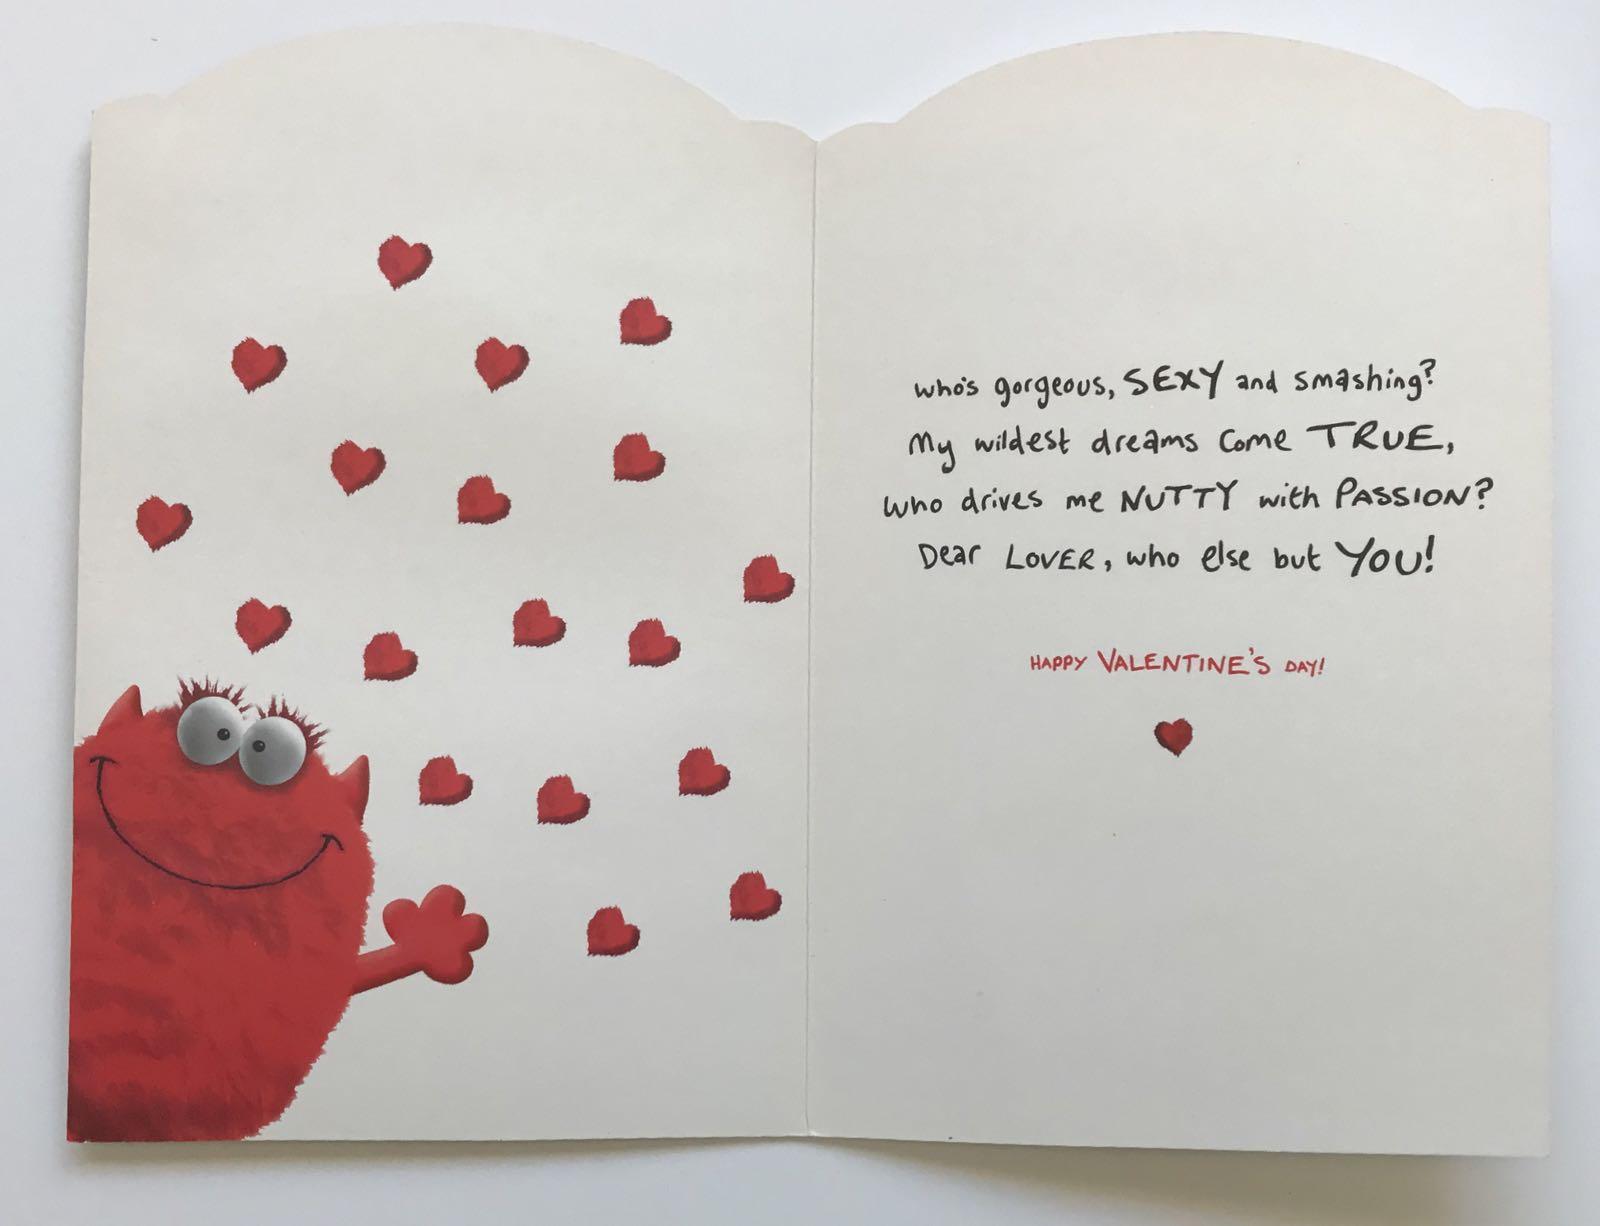 who's gorgeous, SEXY and smashing?
My wildest dreams come TRUE,
who drives me NUTTY with PASSION?
Dear LOVER, who else but YOU!
HAPPY VALENTINE'S DAY!